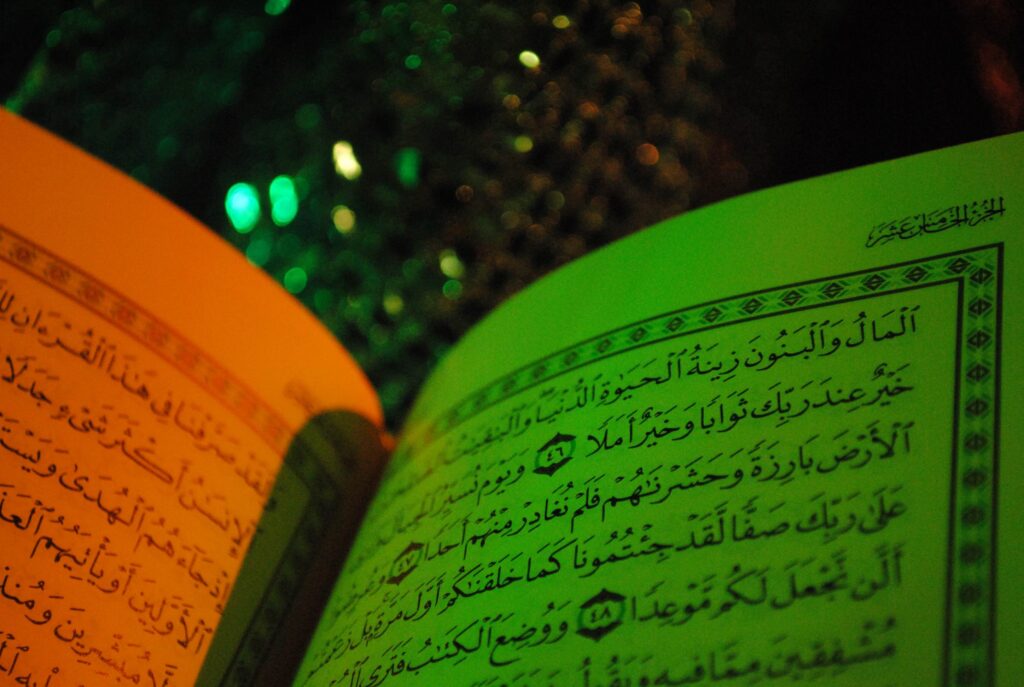 الجزء الخامس عشر
ٱلْمَالُ وَٱلْبَنُونَ زِينَةُ ٱلْحَيَوٰةِ ٱلدُّنْيَا وَٱلْبَٰقِيَٰتُ
خَيْرٌ عِندَ رَبِّكَ ثَوَابًا وَخَيْرٌ أَمَلًا ٤٦ وَيَوْمَ نُسَيِّرُ ٱلْجِبَالَ
ٱلْأَرْضَ بَارِزَةً وَحَشَرْنَٰهُمْ فَلَمْ نُغَادِرْ مِنْهُمْ أَحَدًا ٤٧ وَعُرِضُوا۟
عَلَىٰ رَبِّكَ صَفًّا لَّقَدْ جِئْتُمُونَا كَمَا خَلَقْنَٰكُمْ أَوَّلَ مَرَّةٍۭ بَلْ زَعَمْتُمْ
أَلَّن نَّجْعَلَ لَكُم مَّوْعِدًا ٤٨ وَوُضِعَ ٱلْكِتَٰبُ فَتَرَى
مُشْفِقِينَ مِمَّا فِيهِ وَيَقُولُونَ
صَرَّفْنَا فِى هَٰذَا ٱلْقُرْءَانِ
ٱلْإِنسَٰنُ أَكْثَرَ شَىْءٍ جَدَلًا
إِذْ جَآءَهُمُ ٱلْهُدَىٰ
ٱلْأَوَّلِينَ أَوْ يَأْتِيَهُمُ
إِلَّا مُبَشِّرِينَ